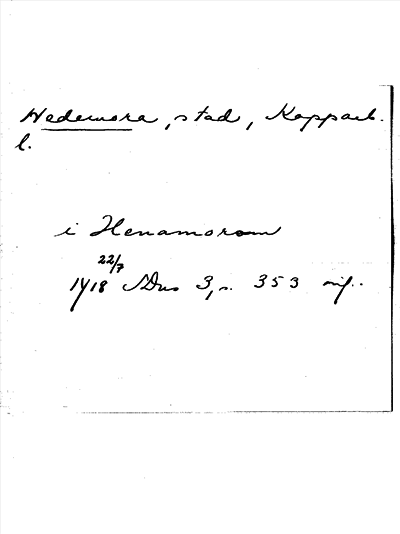 Hedemora, stad, Kopparb.
l.
i Henamorom
22/7
1418 SDns 3, s. 353 mf.